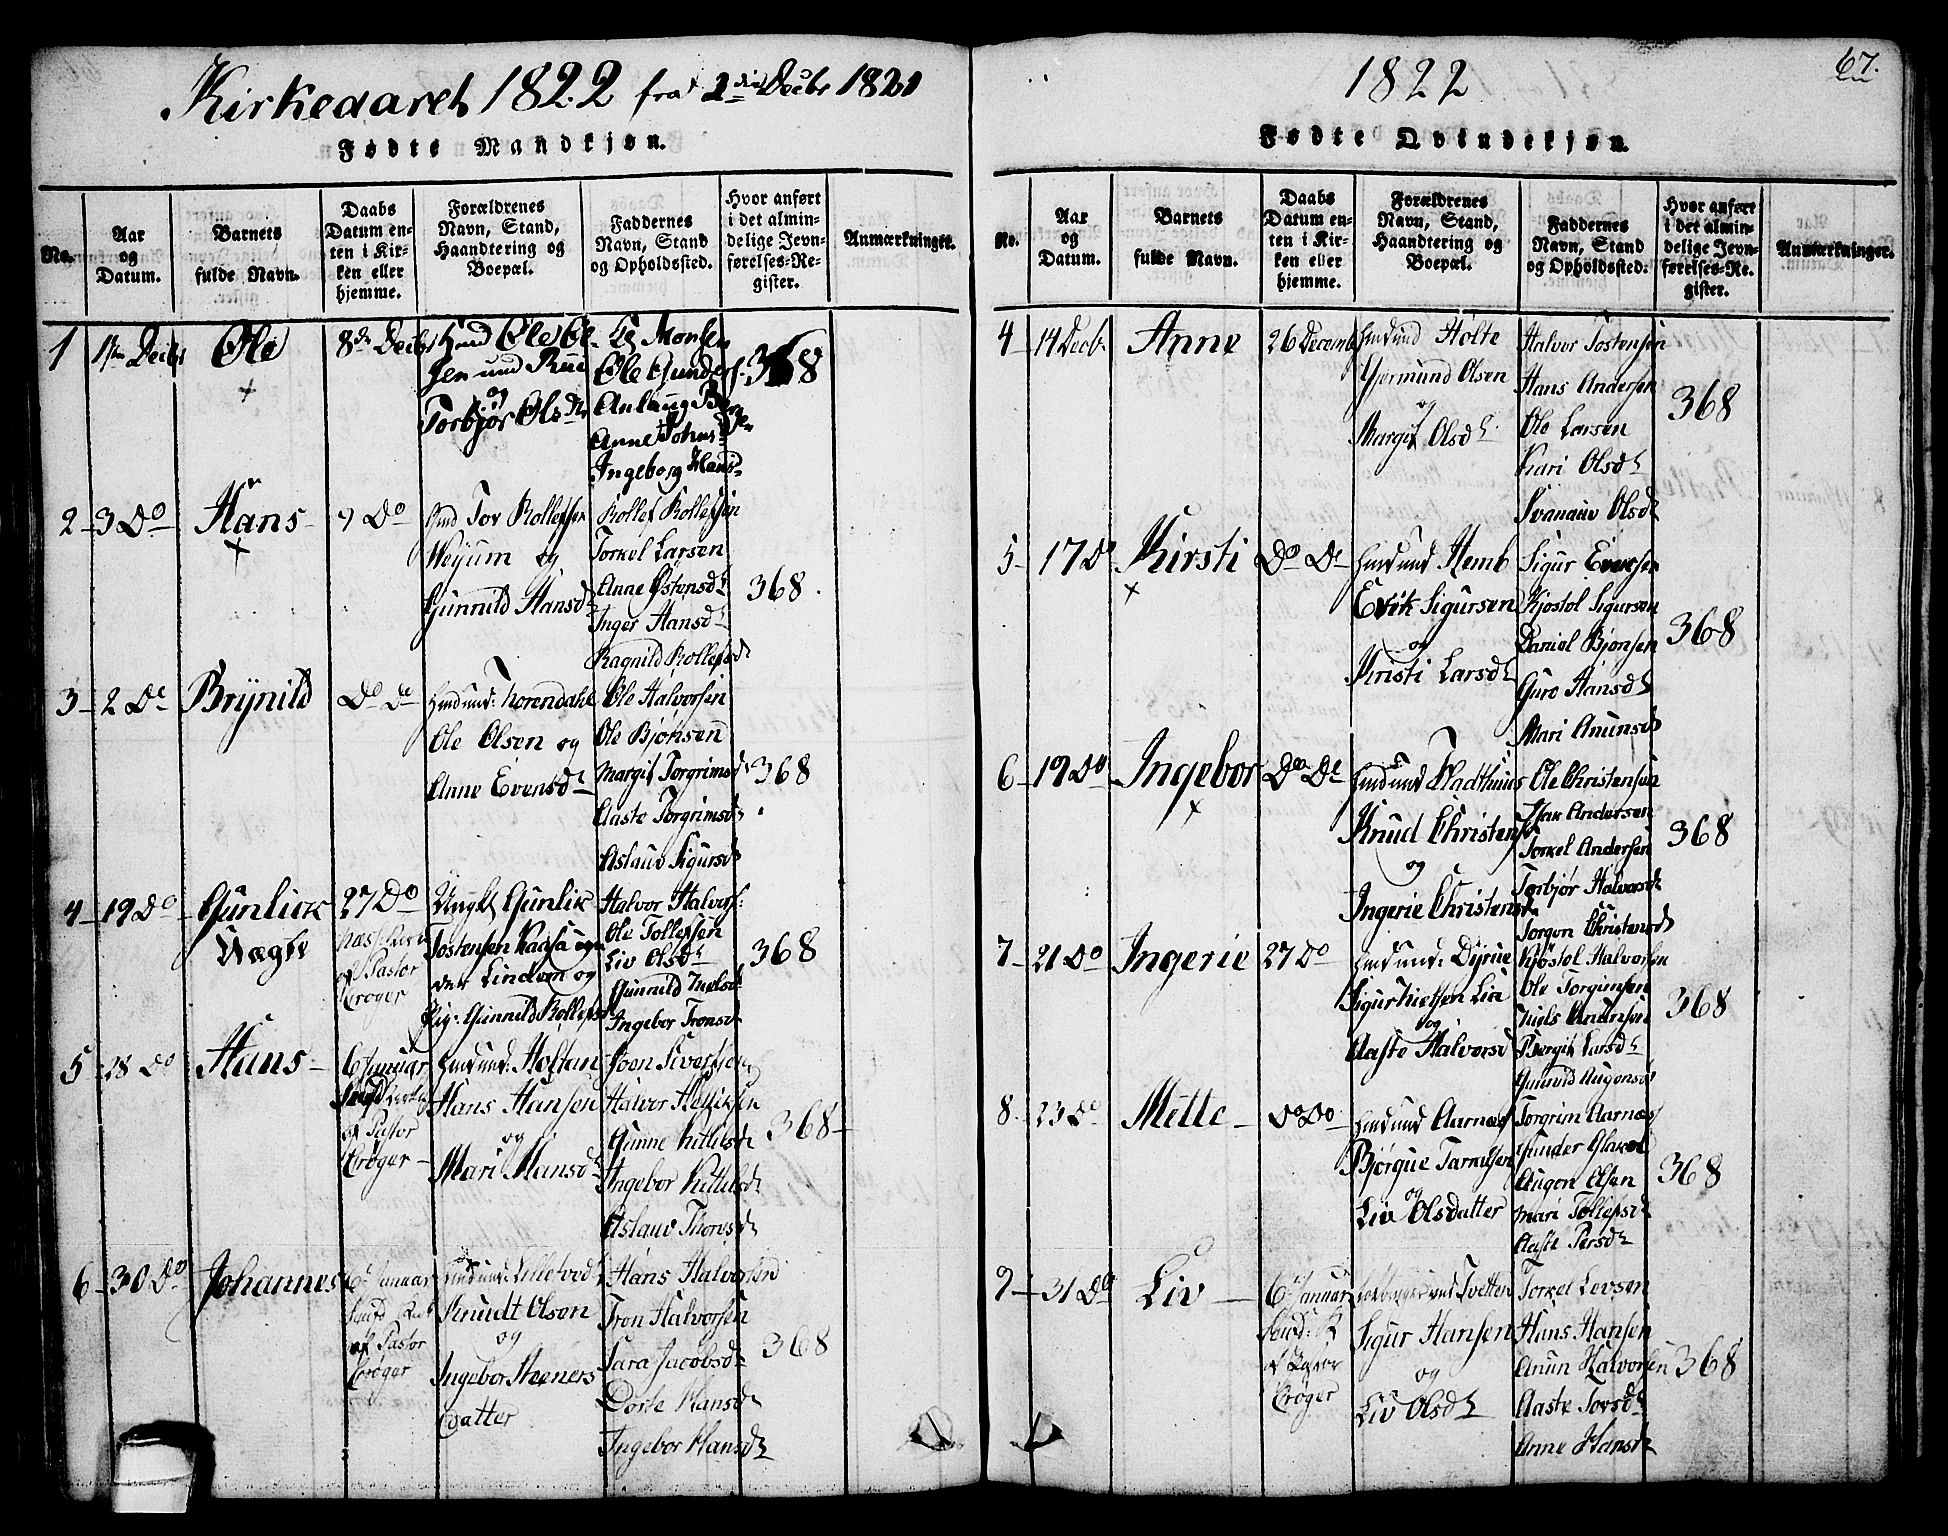 Kirkeaaret 1822 fra 1die Decbr 1821
Fødte Mandkjøn.
No.
Aar og Datum.
Barnets fulde Navn.
Daabs Datum enten i Kirken eller hjemme.
Forældrenes Navn, Stand, Haandtering og Boepæl.
Faddernes Navn, Stand og Opholdssted.
Hvor anført i det almindelige Jevnførelses-Register.
Anmærkninger.
1
1ste Decbr
Ole
+
8de Decbr
Ole Gunders.
og
Torbjør Olsdr
Anne Johnsd
Ingeborg Hansd
368
2 3 Do
Hans
+
9 Do
Hmd Tov Rollefsen
Weyum og
Gunnild Hansd
Rollef Rollefsen
Torkel Larsen
Anne Østensd
Inger Hansd
Ragnild Rollefsd
368
3 2 Do
Brynild
Do Do
Ole Olsen og
Anne Evensd
Ole Halvorsen
Ole Bjønsen
Margit Torgrimsd
Aaste Torgrimsd
Aslaug Sigursd
368
4 19 Do
Gunlick
Uægte
27 Do
af Pastor
Crøger
Ungk Gunlik
Tostensen
Linden og
Pig: Gunnild Rollefsd
Halvor Halvors:
Ole Tollefsen
Liv Olsd
Gunnild Nielsd
Ingebor Tronsd
368
5 28 Do
Hans
6 Januar
af Pastor
Crøger
Hmd und: Holtan
Hans Hansen
og
Mari Hansd
Joen Siversen
Halvor Helliksen
Gunne Kittilsd
Ingebor Kittilsd
Aslaug Thorisd
368
6 30 Do
Johannes
6 Januar
af Pastor
Crøger
Knudt Olsen
og
Ingebor Steners
Datter
Hans Halvorsen
Tron Halvorsen
Sara Jacobsd
Dorte Hansd
Ingebor Hansd
368
1822
67.
Fødte Qvindekjøn.
No.
Aar og Datum.
Barnets fulde Navn.
Daabs Datum enten i Kirken eller hjemme.
Forældrenes Navn, Stand, Haandtering og Boepæl.
Faddernes Navn, Stand og Opholdssted.
Hvor anført i det almindelige Jevnførelses-Register.
Anmærkninger.
4 14 Decb.
Anne
26 Decemb
Hmd und Holte
Gjermund Olsen
og
Margit Olsd
Halvor Tostensen
Hans Andersen
Ole Larsen
Kari Olsd
Svanaug Olsd
368
5 17 Do
Kirsti
+
Do Do
Hmd und Hemb
Erik Sigursen
og
Kristi Larsd
Kjøstol Sigursen
Daniel Bjønsen
Guro Hansd
Mari Anunsd
368
6 19 Do
Ingebor
+
Do Do
Knud Christens
og
Ingerie Christensd
Ole Christensen
Torkel Andersen
Torbjør Halvorsd
Torgon Christensd
368
7 21 Do
Ingerie
27 Do
Sigur Nielsen Lia
og
Aaste Halvorsd
Kjøstol Halvorsen
Ole Torgrimsen
Niels Andersen
Bergit Larsd
368
8 23 Do
Mette
Do Do
Hmd und Aarnæs
Bjørgue Tarnesen
og
Liv Olsdatter
Torgrim Aarnæs
Gunder
Augon Olsen
Mari Tollefsd
Aaste Persd
368
9 31 Do
Liv
6 Januar
Crøger
Tvetten
Sigur Hansen
og
Liv Olsd
Torkel Levsen
Hans Hansen
Anun Halvorsen
Aaste Torsd
Anne Hansd
368